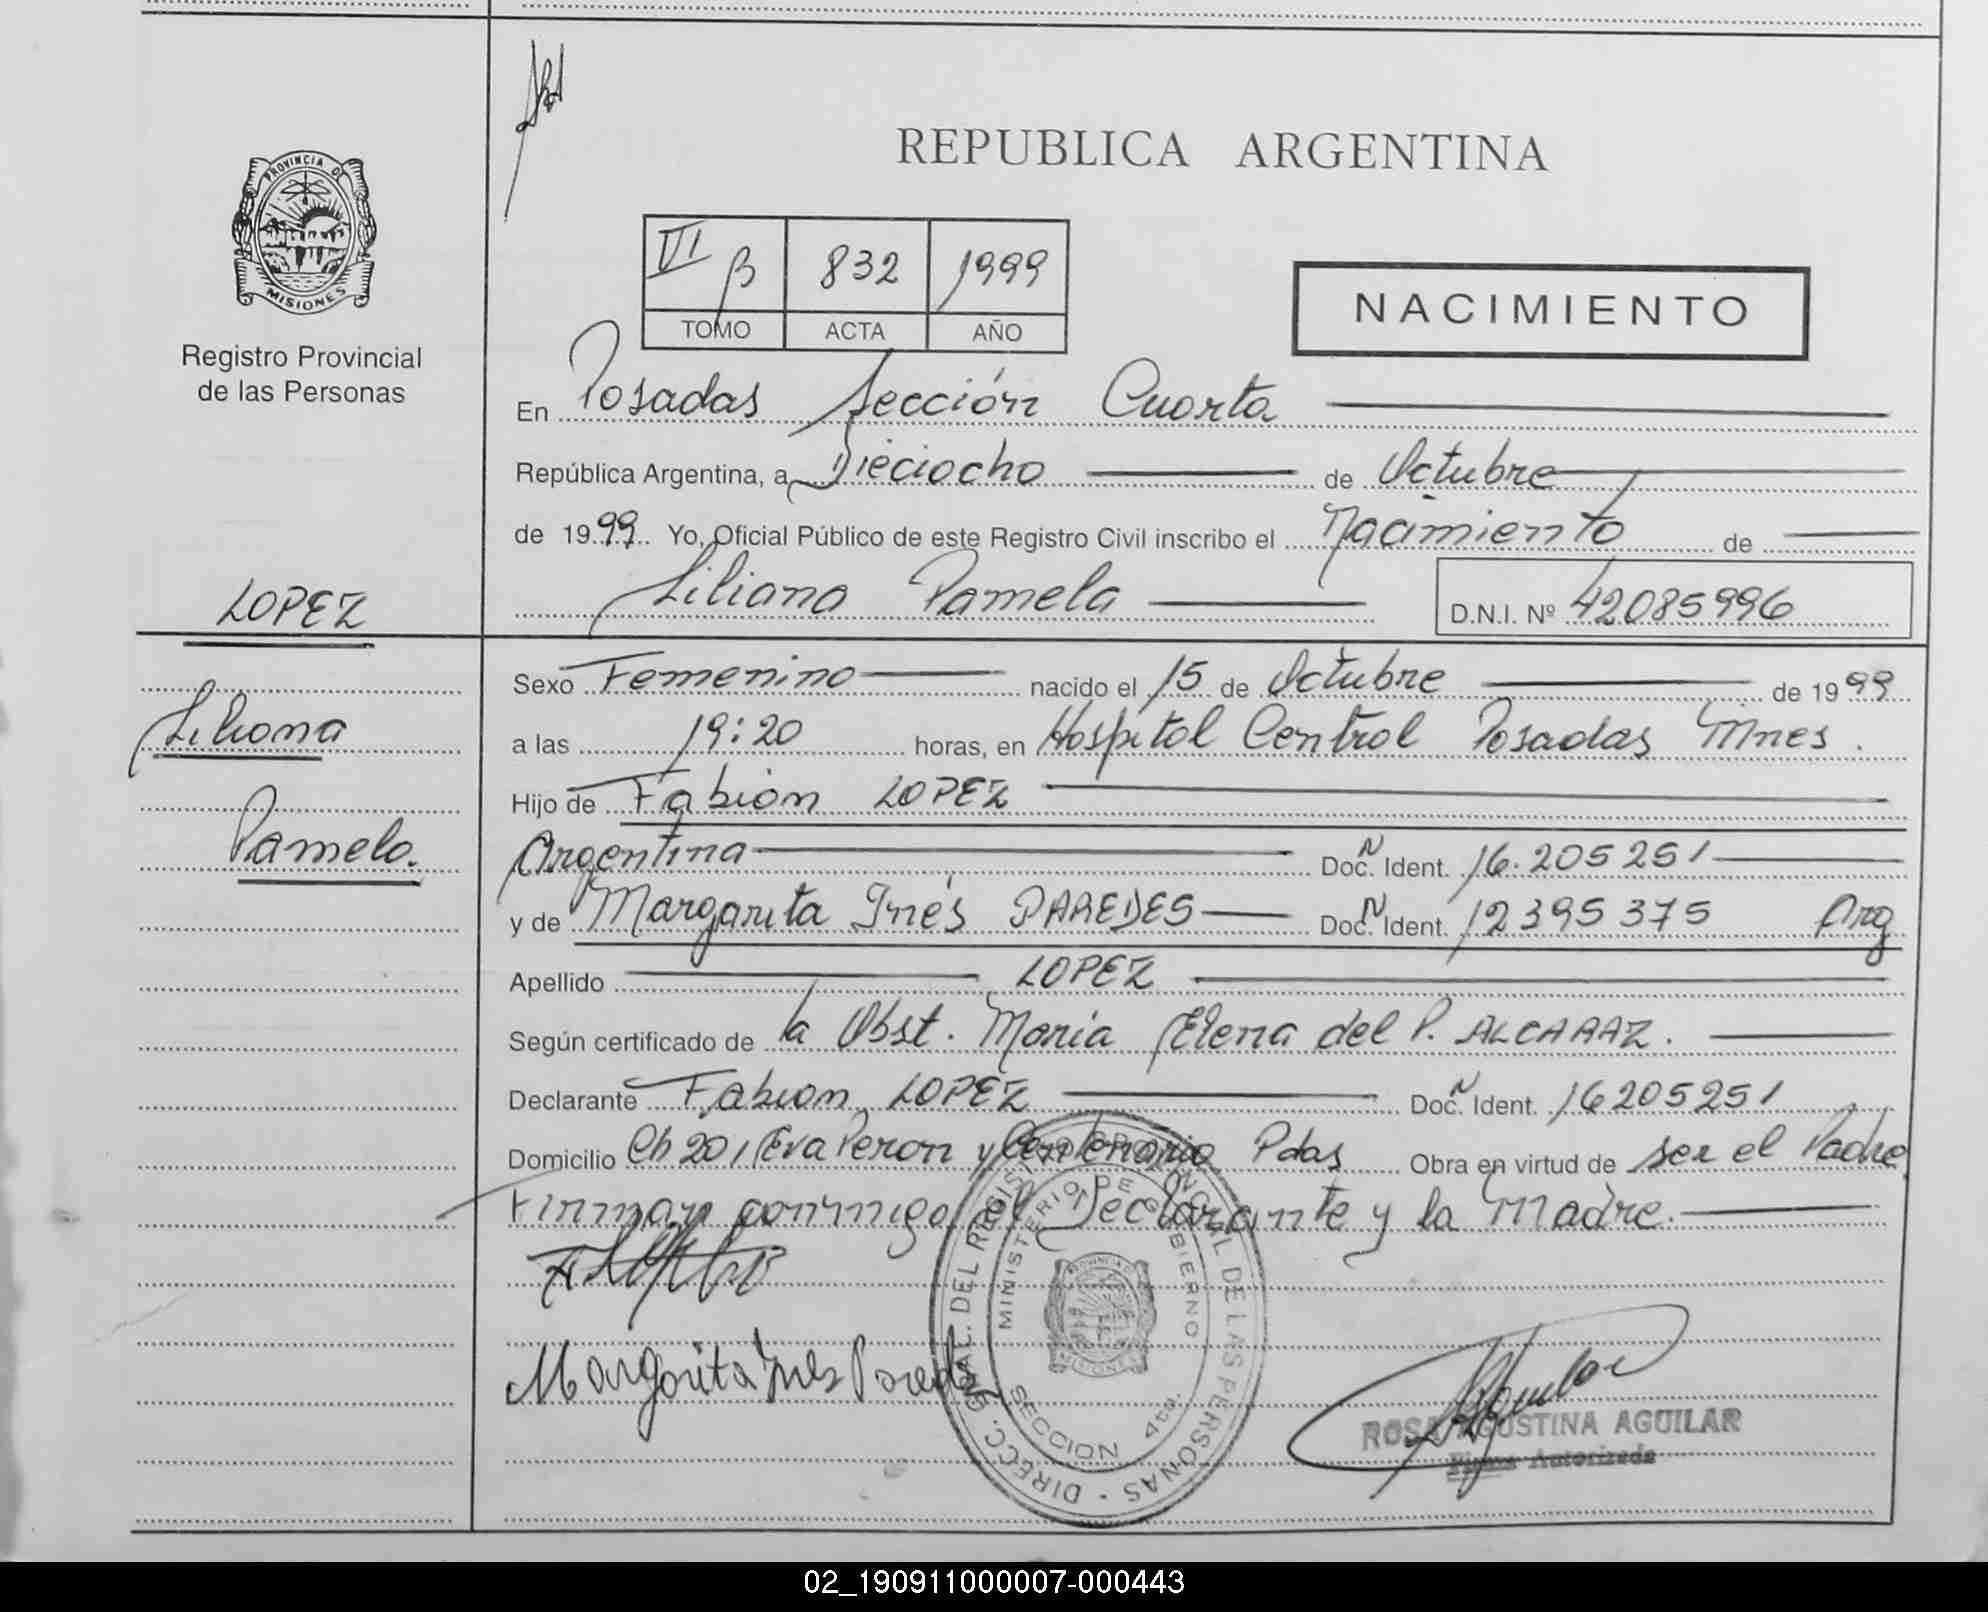 REPUBLICA ARGENTINA
PROVINCIA DE
MISIONES
Registro Provincial
de las Personas
VI B 832 1999
TOMO ACTA AÑO
NACIMIENTO
En Posadas Sección Cuarta
República Argentina, a Dieciocho de Octubre
de 1999. Yo, Oficial Público de este Registro Civil inscribo el Nacimiento de
Liliana Pamela D.N.I. Nº 42085996
LOPEZ
Liliana
Pamela.
Sexo Femenino nacido el 15 de Octubre de 1999
a las 19:20 horas, en Hospital Central Posadas Mnes.
Hijo de Fabián LOPEZ
Argentina Doc. N Ident. 16.205251
y de Margarita Inés PAREDES Doc. N Ident. 12395375 Arg
Apellido LOPEZ
Según certificado de la Obst. Maria Elena del P. ALCARAZ.
Declarante Fabian LOPEZ Doc. N Ident. 16205251
Domicilio Ch 20, Eva Peron y Centenario Pdas Obra en virtud de ser el Padre
Firman conmigo el Declarante y la Madre.
Margarita Ines Paredes
DIRECC. GRAL. DEL REGISTRO PROVINCIAL DE LAS PERSONAS -
MINISTERIO DE GOBIERNO
PROVINCIA DE
MISIONES
SECCION 4ta.
ROSA AGUSTINA AGUILAR
Firma Autorizada
02_190911000007-000443